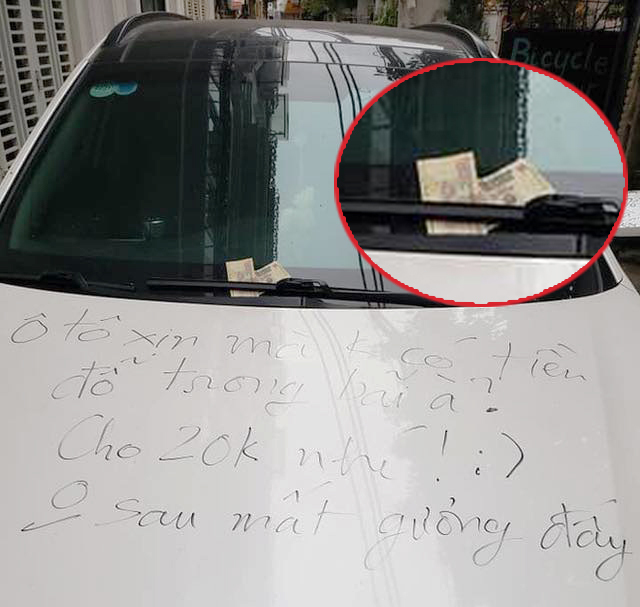 Bicycle
Ô tô xịn mà k có tiền
đỗ trong bãi à?
Cho 20k nhé! :)
sau mất gương đấy